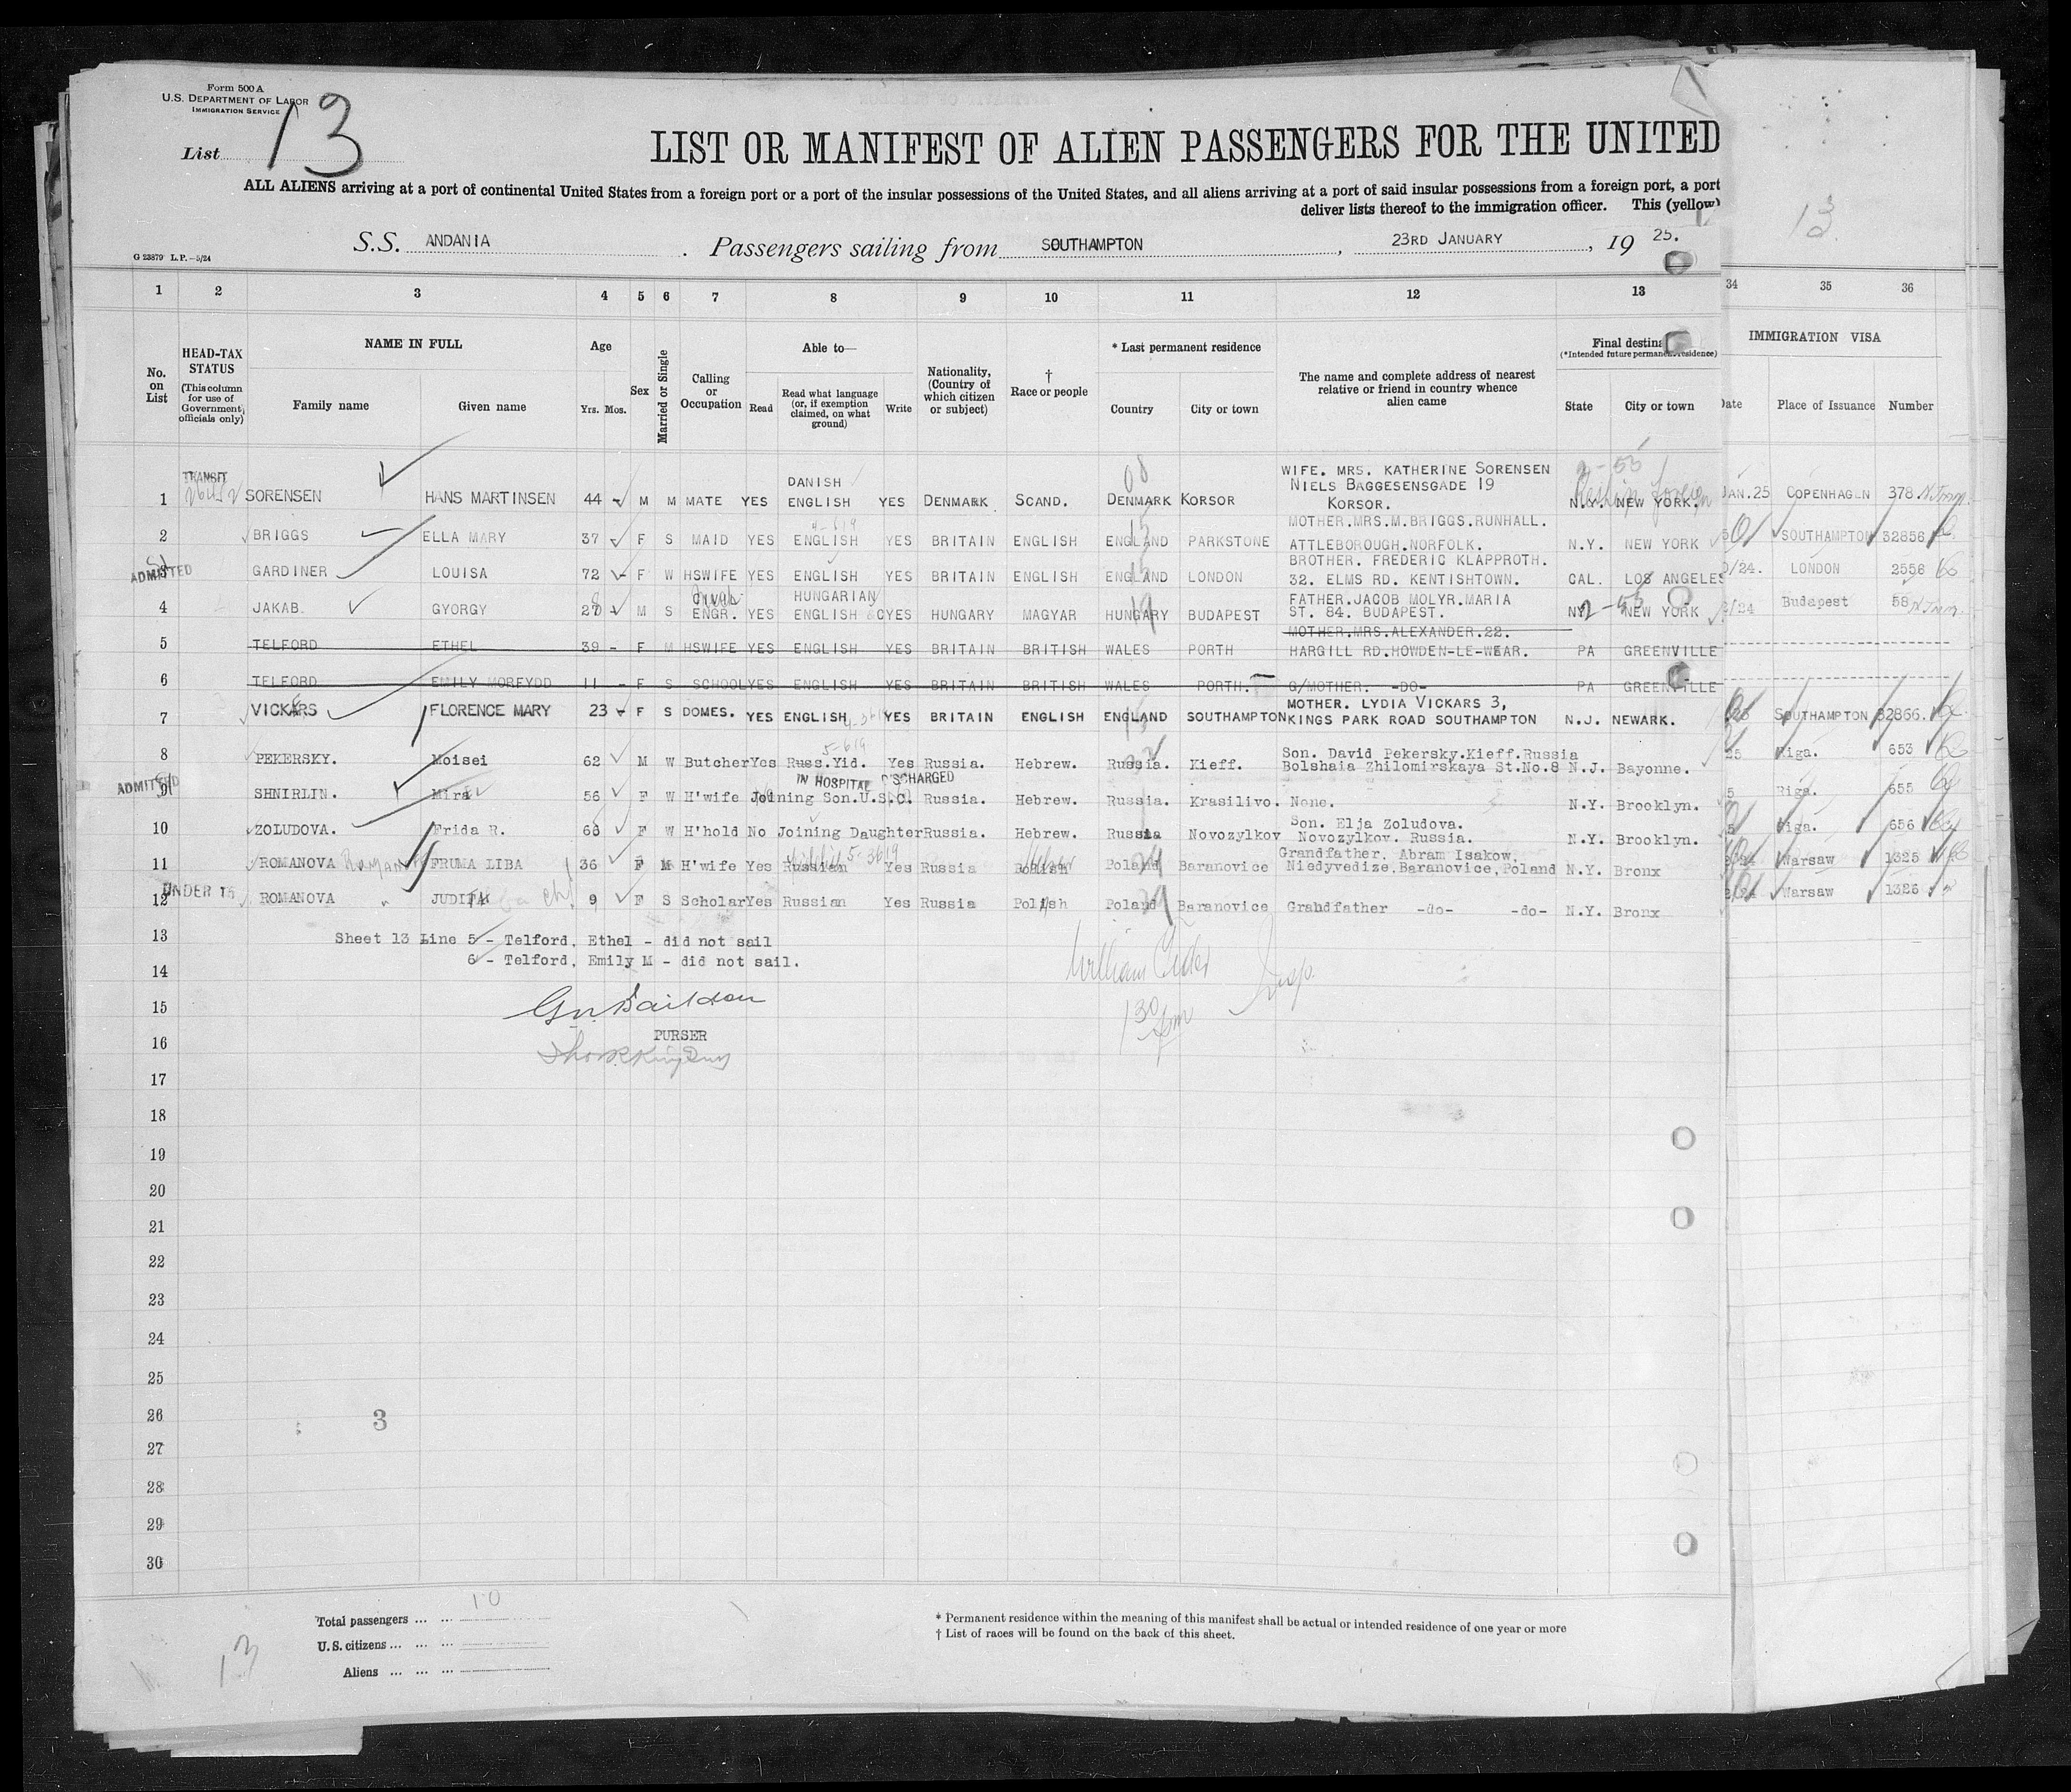 Form 500 A
U.S. DEPARTMENT OF LABOR
IMMIGRATION SERVICE
List 13
LIST OR MANIFEST OF ALIEN PASSENGERS FOR THE UNITED
ALL ALIENS arriving at a port of continental United States from a foreign port or a port of the insular possessions of the United States, and all aliens arriving at a port of said insular possessions from a foreign port, a port
deliver lists thereof to the immigration officer. This (yellow)
13
S.S. ANDANIA . Passengers sailing from SOUTHAMPTON , 23RD JANUARY , 19 25.
G 23879 L.P.—5/24
1 2 3 4 5 6 7 8 9 10 11 12 13 34 35 36
No. on List
HEAD-TAX STATUS
(This column for use of Government officials only)
NAME IN FULL
Family name Given name
Age
Yrs. Mos.
Sex
Married or Single
Calling or Occupation
Able to—
Read
Read what language (or, if exemption claimed, on what ground)
Write
Nationality, (Country of which citizen or subject)
† Race or people
* Last permanent residence
Country City or town
The name and complete address of nearest relative or friend in country whence alien came
Final destina
(*Intended future permanent residence)
State City or town
IMMIGRATION VISA
Date Place of Issuance Number
TRANSIT
DANISH
WIFE. MRS. KATHERINE SORENSEN
NIELS BAGGESENSGADE 19
1 SORENSEN HANS MARTINSEN 44 - M M MATE YES ENGLISH YES DENMARK SCAND. DENMARK KORSOR KORSOR. N.Y. NEW YORK. JAN.25 COPENHAGEN 378.
MOTHER.MRS.M.BRIGGS.RUNHALL.
2 BRIGGS ELLA MARY 37 - F S MAID YES ENGLISH YES BRITAIN ENGLISH ENGLAND PARKSTONE ATTLEBOROUGH.NORFOLK. N.Y. NEW YORK SOUTHAMPTON 32856
ADMITTED
BROTHER. FREDERIC KLAPPROTH.
3 GARDINER LOUISA 72 - F W HSWIFE YES ENGLISH YES BRITAIN ENGLISH ENGLAND LONDON 32. ELMS RD. KENTISHTOWN. CAL. LOS ANGELES /24. LONDON 2556
CIVIL HUNGARIAN
FATHER.JACOB MOLYR.MARIA
4 JAKAB. GYORGY 28 - M S ENGR. YES ENGLISH YES HUNGARY MAGYAR HUNGARY BUDAPEST ST. 84. BUDAPEST. NY NEW YORK /24 Budapest 58
MOTHER.MRS.ALEXANDER.22.
5 TELFORD ETHEL 39 - F M HSWIFE YES ENGLISH YES BRITAIN BRITISH WALES PORTH HARGILL RD.HOWDEN-LE-WEAR. PA GREENVILLE
6 TELFORD EMILY MORFYDD 11 - F S SCHOOL YES ENGLISH YES BRITAIN BRITISH WALES PORTH. G/MOTHER. -DO- PA GREENVILLE
MOTHER. LYDIA VICKARS 3,
7 VICKARS FLORENCE MARY 23 - F S DOMES. YES ENGLISH YES BRITAIN ENGLISH ENGLAND SOUTHAMPTON KINGS PARK ROAD SOUTHAMPTON N.J. NEWARK. SOUTHAMPTON 32866.
Son. David Pekersky.Kieff.Russia
8 PEKERSKY. Moisei 62 M W Butcher Yes Russ.Yid. Yes Russia. Hebrew. Russia. Kieff. Bolshaia Zhilomirskaya St.No.8 N.J. Bayonne. 25 Riga. 653
ADMITTED
IN HOSPITAL DISCHARGED
9 SHNIRLIN. Mira 56 F W H'wife Joining Son.U.S.C. Russia. Hebrew. Russia. Krasilivo. None. N.Y. Brooklyn. 5 Riga. 655
Son. Elja Zoludova.
10 ZOLUDOVA. Frida R. 68 F W H'hold No Joining Daughter Russia. Hebrew. Russia Novozylkov Novozylkov. Russia. N.Y. Brooklyn. 5 Riga. 656
Grandfather. Abram Isakow,
11 ROMANOVA FRUMA LIBA 36 F M H'wife Yes Russian Yes Russia Polish Poland Baranovice Niedyvedize,Baranovice,Poland N.Y. Bronx Warsaw 1325
UNDER 16
12 ROMANOVA JUDITH 9 F S Scholar Yes Russian Yes Russia Polish Poland Baranovice Grandfather -do- -do- N.Y. Bronx /24 Warsaw 1326
13 Sheet 13 Line 5 - Telford, Ethel - did not sail
6 - Telford, Emily M - did not sail.
14
William Insp.
15
130 pm
PURSER
16
17
18
19
20
21
22
23
24
25
26
3
27
28
29
30
Total passengers ... ... 10
U.S. citizens ... ... ...
Aliens ... ... ...
13
* Permanent residence within the meaning of this manifest shall be actual or intended residence of one year or more
† List of races will be found on the back of this sheet.